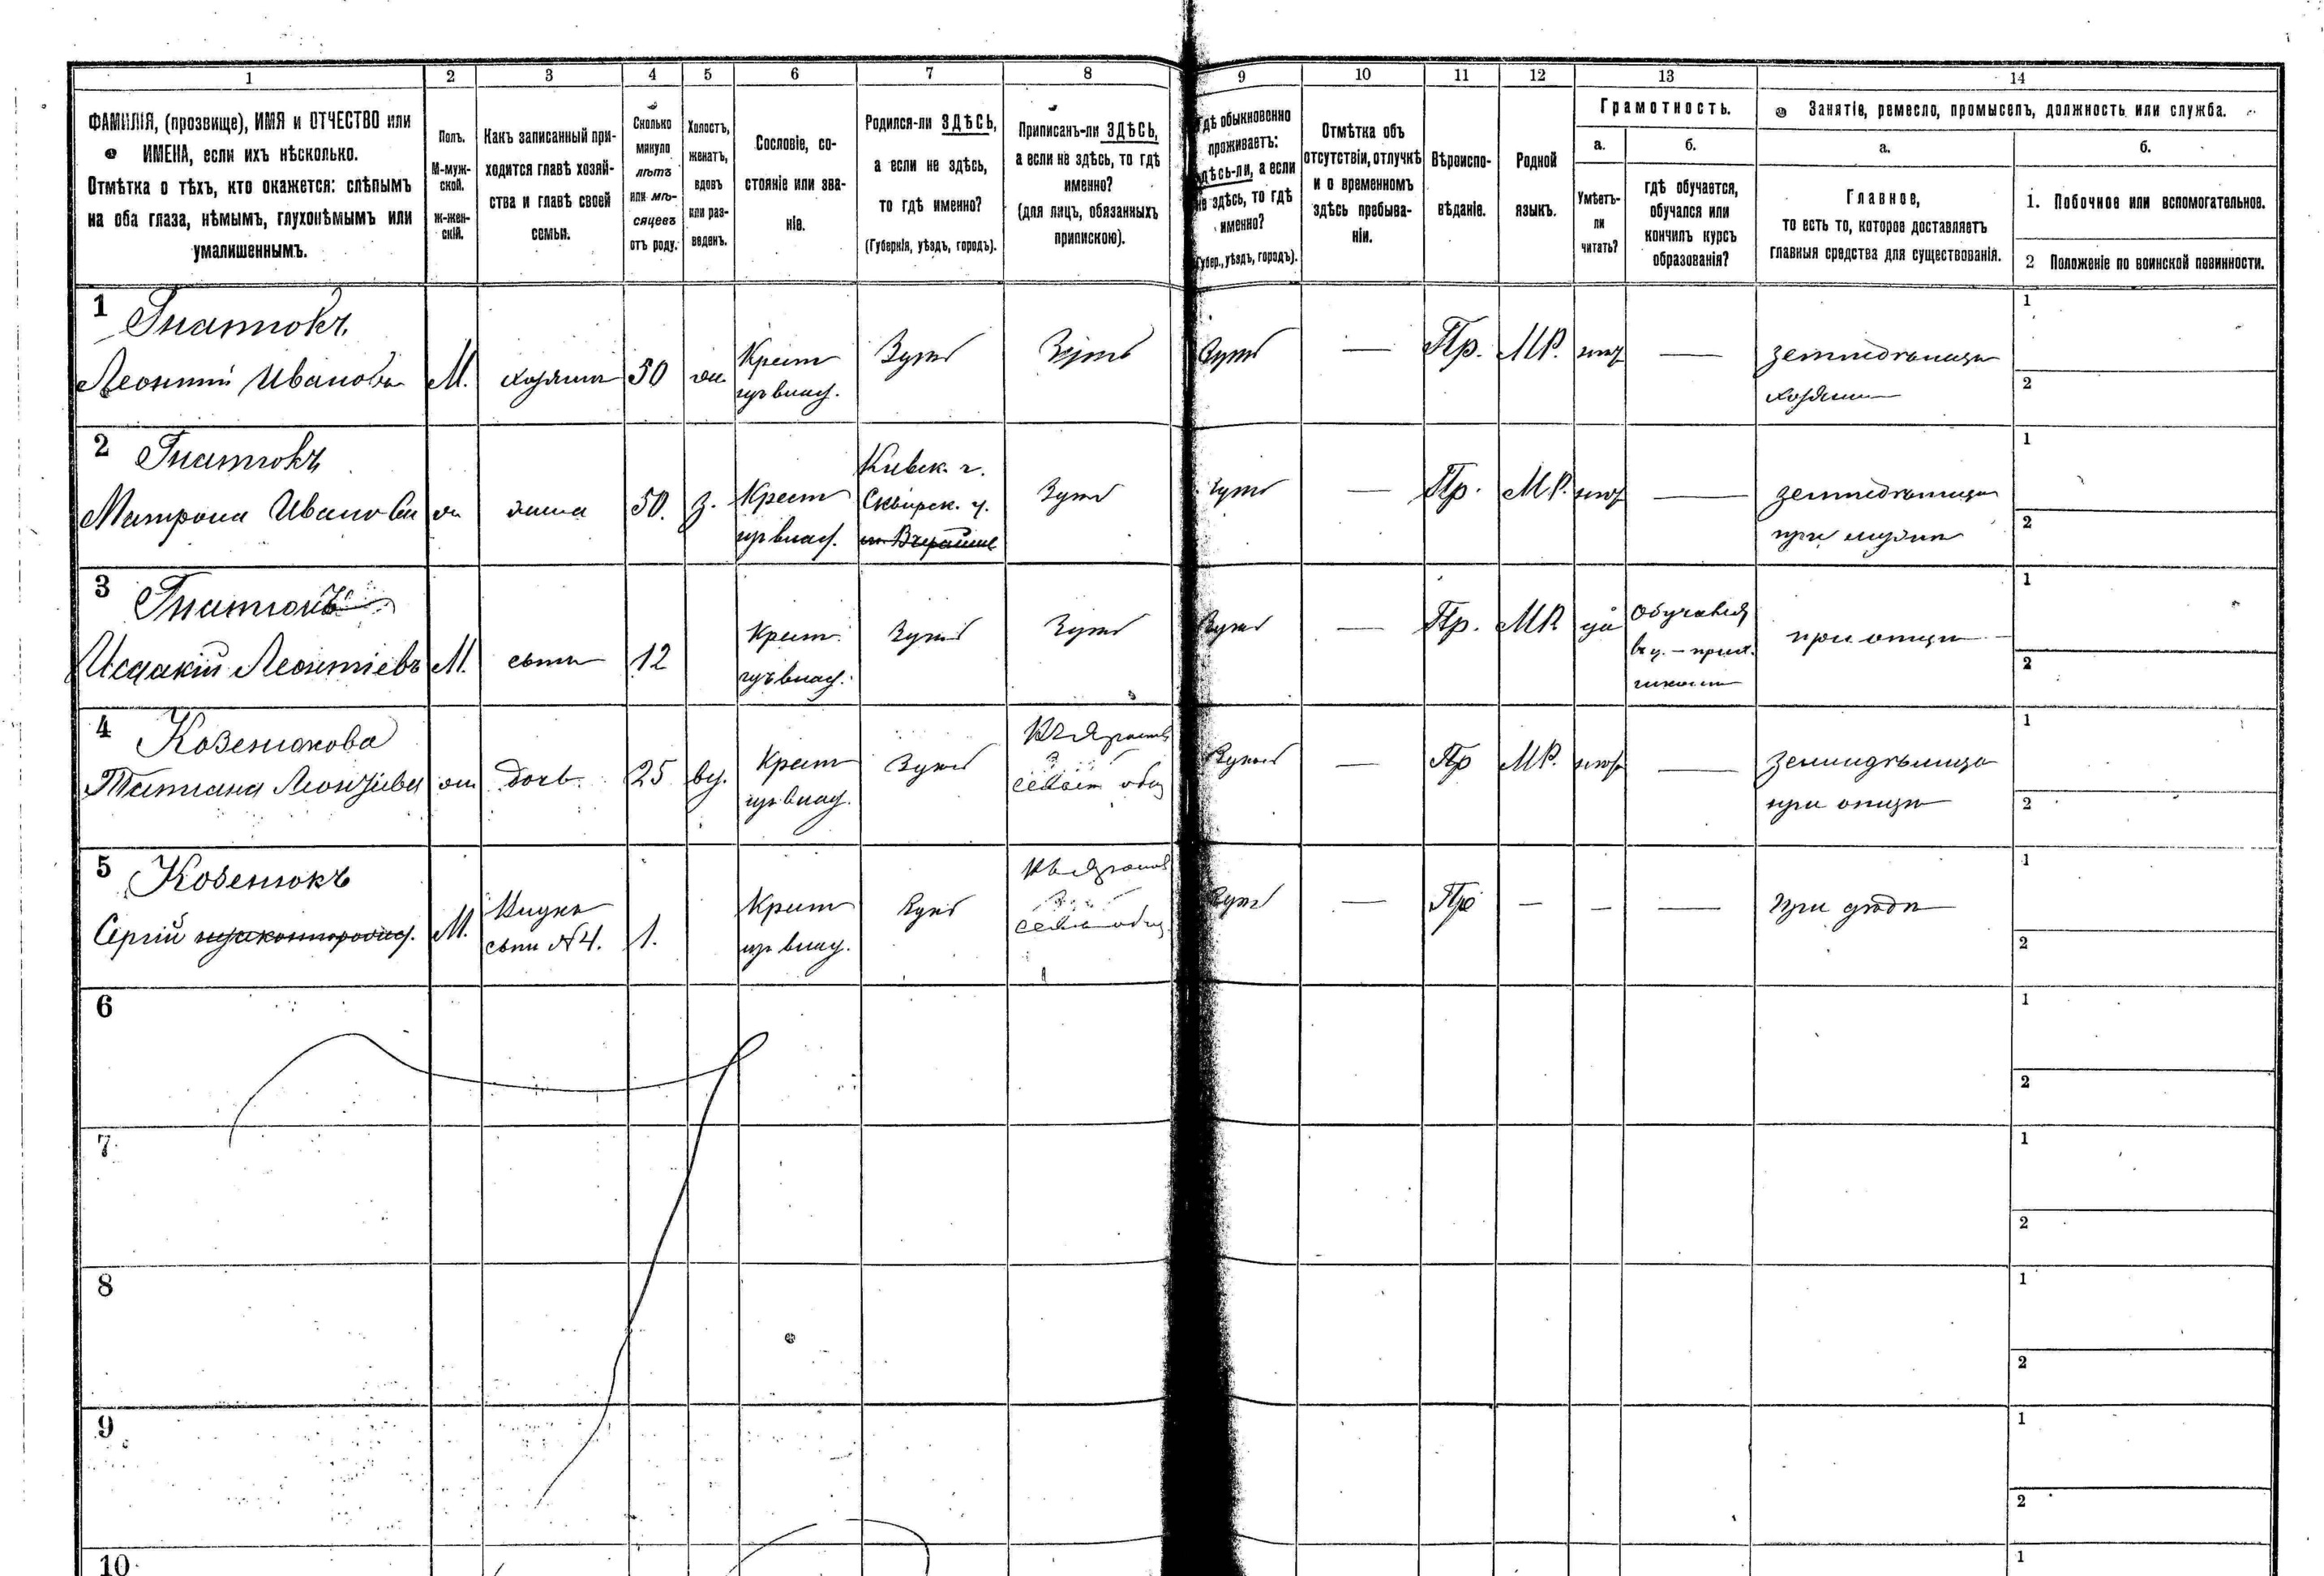 1 2 3 4 5 6 7 8 9 10 11 12 13 14
ФАМИЛІЯ, (прозвище), ИМЯ и ОТЧЕСТВО или
ИМЕНА, если ихъ нѣсколько.
Отмѣтка о тѣхъ, кто окажется: слѣпымъ
на оба глаза, нѣмымъ, глухонѣмымъ или
умалишеннымъ.
Полъ.
М-муж-
ской.
Ж-жен-
скій.
Какъ записанный при-
ходится главѣ хозяй-
ства и главѣ своей
семьи.
Сколько
минуло
лѣтъ
или мѣ-
сяцевъ
отъ роду.
Холостъ,
женатъ,
вдовъ
или раз-
веденъ.
Сословіе, со-
стояніе или зва-
ніе.
Родился-ли ЗДѢСЬ,
а если не здѣсь,
то гдѣ именно?
(Губернія, уѣздъ, городъ).
Приписанъ-ли ЗДѢСЬ,
а если не здѣсь, то гдѣ
именно?
(для лицъ, обязанныхъ
припискою).
Гдѣ обыкновенно
проживаетъ:
здѣсь-ли, а если
не здѣсь, то гдѣ
именно?
(Губер., уѣздъ, городъ).
Отмѣтка объ
отсутствіи, отлучкѣ
и о временномъ
здѣсь пребыва-
ніи.
Вѣроиспо-
вѣданіе.
Родной
языкъ.
Грамотность.
а.
Умѣетъ-
ли
читать?
б.
гдѣ обучается,
обучался или
кончилъ курсъ
образованія?
Занятіе, ремесло, промыселъ, должность или служба.
а.
Главное,
то есть то, которое доставляетъ
главныя средства для существованія.
б.
1. Побочное или вспомогательное.
2 Положеніе по воинской повинности.
1 Гнатюкъ
Леонтій Ивановъ М. хозяинъ 50 Крест Здѣсь Здѣсь Здѣсь — Пр. МР. нѣтъ — земледѣлецъ
хозяинъ
1
2
2 Гнатюкъ
Матрона Иванова ж жена 50. з. Крест Кіевск. г.
Сквирск. у.
Здѣсь Здѣсь — Пр. МР. нѣтъ — земледѣлица
при мужѣ
1
2
3 Гнатюкъ
Исаакій Леонтіевъ М. сынъ 12 Крест Здѣсь Здѣсь Здѣсь — Пр. МР да Обучался
при отцѣ
1
2
4 Козенюкова
Татіана Леонтіева ж дочь 25 вд. Крест Здѣсь
Здѣсь — Пр МР. нѣтъ — земледѣлица
при отцѣ
1
2
5 Козенюкъ
Сергій М. сынъ №4. 1. Крест Здѣсь
Здѣсь — Пр — — — при дѣдѣ
1
2
6
1
2
7
1
2
8
1
2
9
1
2
10
1